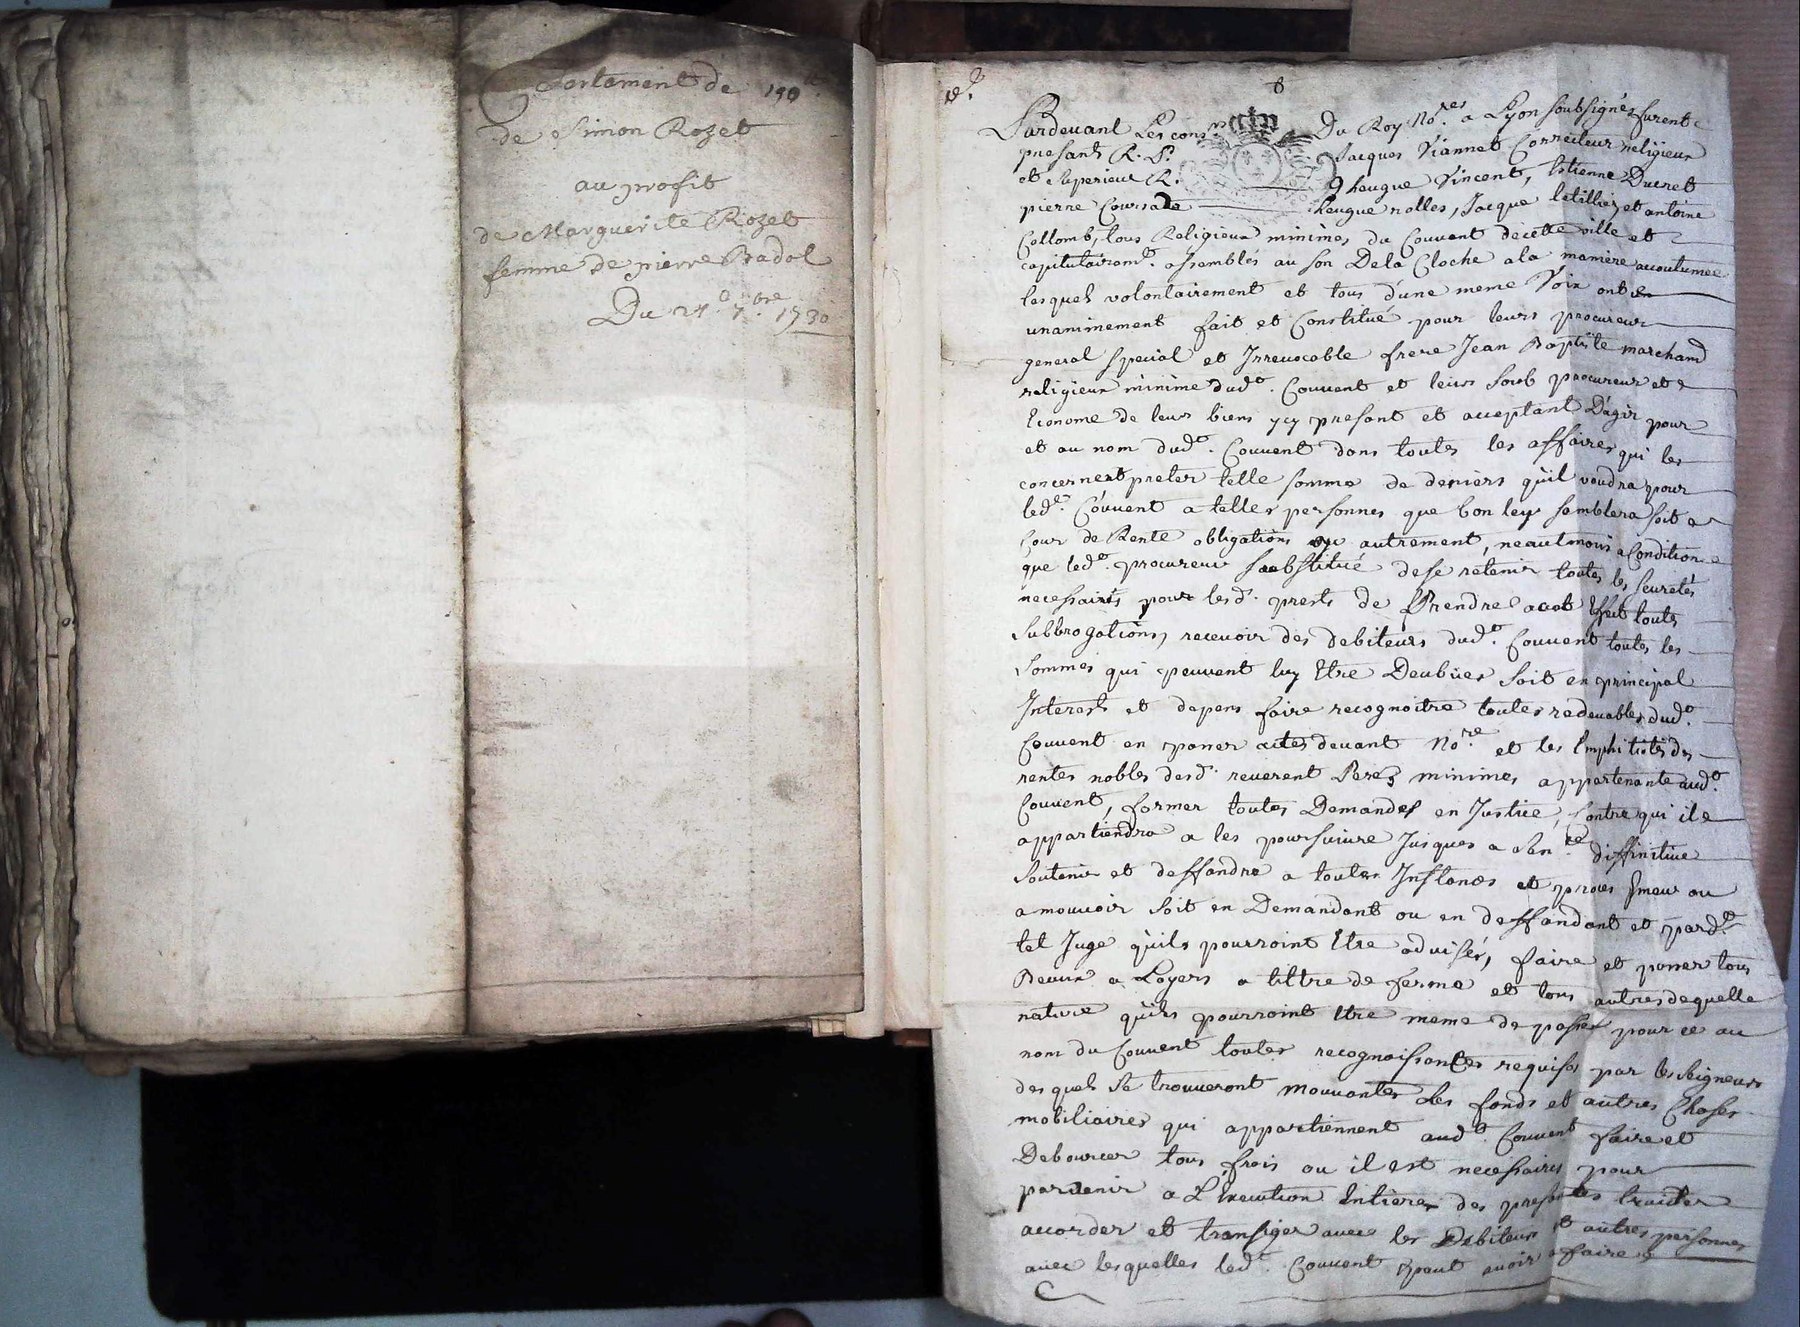 Portament de 190
de Simon Rozet
au profit
de Marguerite Rozet
femme de pierre Badol
Du 24e 7bre 1730
Pardevant Les cons. Du Roy No.res a Lyon soubsignés furent
presants R. P. Jacques Viannet Correcteur religieux
et Superieur R. hougue Vincent, Estienne Ducret
pierre hougue nolles, Jacque letillier et antoine
Collomb, tous Religieux minimes du Couvent de cette ville et
capitulairemt. assemblés au son De la Cloche a la maniere accoutumée
lesquels volontairement et tous d'une meme Voix ont
unanimement fait et Constitué pour leurs procureur
general special et Irrevocable frere Jean Baptiste marchand
religieux minime dudt. Couvent et leurs soub procureur et
Econome de leurs biens ycy present et acceptant D'agir pour
et au nom dudt. Couvent dans toutes les affaires qui les
concernent preter telle somme de deniers qu'il voudra pour
ledt. Couvent a telles personnes que bon luy semblera soit a
Cour de Rente obligations ou autrement, neautmoins a Condition
que ledt. procureur substitué de se retenir toutes les seuretés
necessaires pour lesd. prests de Prendre a cet Effect toutes
subbrogations, recevoir des debiteurs dudt. Couvent toutes les
sommes qui peuvent luy Etre Deubües soit en principal
Interests et depens faire recognoitre toutes redevables dudt.
Couvent en passer actes devant No.re et les Emphitiotes des
rentes nobles desd. reverent Peres minimes appartenante audt.
Couvent, former toutes Demandes en Justice, Contre qui il
appartiendra a les poursuivre Jusques a Sen.ce diffinitive
Soutenir et deffandre a toutes Instances et proces Emeus ou
a mouvoir soit en Demandant ou en deffandant et pardt.
tel Juge qu'ils pourroint Etre advisés, faire et passer tous
Beaux a Loyers a tiltre de ferme et tous autres de quelle
nature qu'ils pourroint Etre meme de passer pour ce au
nom du Couvent toutes recognoissantes requises par les seigneurs
desquels se trouveront mouvantes Les fonds et autres Choses
mobiliaires qui appartiennent audt. Couvent faire et
Debourcer tous frais ou il est necessaires pour
parvenir a L'Execution Entiere des presentes traiter
accorder et transiger avec les Debiteurs et autres personnes
avec lesquelles ledt. Couvent peut avoir affaire